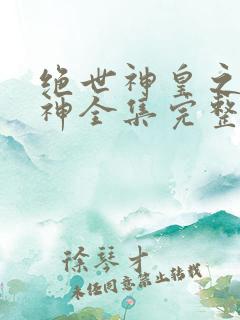 绝世神皇之
神全集完整
徐琴才
未经同意禁止转载